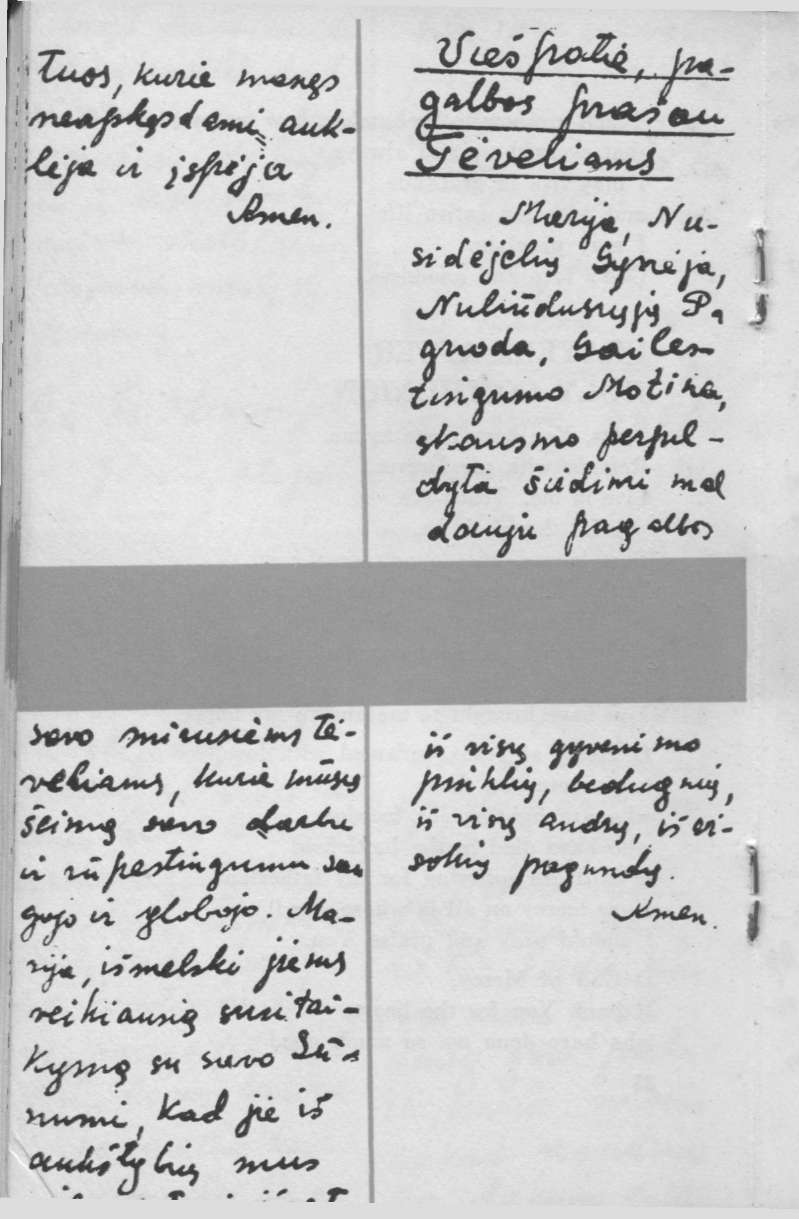 tuos, kurie manęs
neapkęsdami auk-
lėja ir įspėja
Amen.
Viešpatie, pa-
galbos prašau
Tėveliams
Marija, Nu-
sidėjėlių Gynėja,
Nuliūdusiųjų Pa
guoda, Gailes-
tingumo Motina,
skausmo perpil-
dyta širdimi mal
dauju pagalbos
savo mirusiems tė-
veliams, kurie mūsų
šeimą savo darbu
ir rūpestingumu sau
gojo ir globojo. Ma-
rija, išmelski jiems
veikiausią susitai-
kymą su savo Sū-
numi, kad jie iš
aukštybių mus
iš visų gyvenimo
pinklių, bedugnių,
iš visų audrų, iš vi-
sokių pagundų.
Amen.